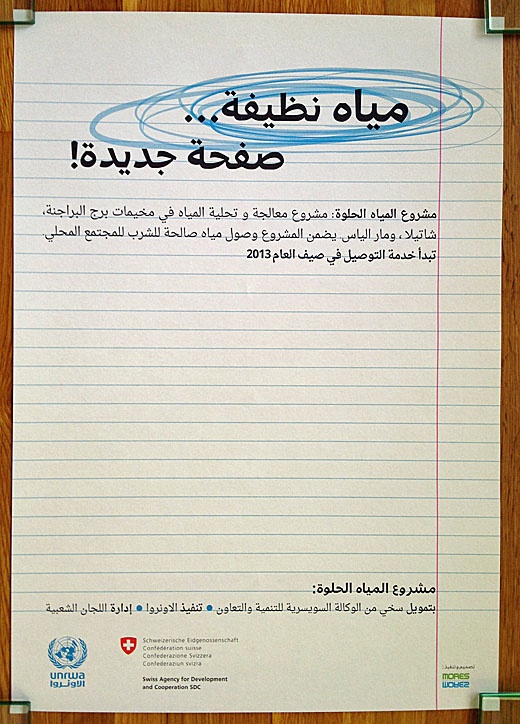 مياه نظيفة...
صفحة جديدة!
مشروع المياه الحلوة: مشروع معالجة و تحلية المياه في مخيمات برج البراجنة،
شاتيلا ، ومار الياس. يضمن المشروع وصول مياه صالحة للشرب للمجتمع المحلي.
تبدأ خدمة التوصيل في صيف العام 2013
مشروع المياه الحلوة:
بتمويل سخي من الوكالة السويسرية للتنمية والتعاون • تنفيذ الاونروا • إدارة اللجان الشعبية
unrwa
الأونروا
Schweizerische Eidgenossenschaft
Confédération suisse
Confederazione Svizzera
Confederaziun svizra
Swiss Agency for Development
and Cooperation SDC
تصميم وتنفيذ:
MORES